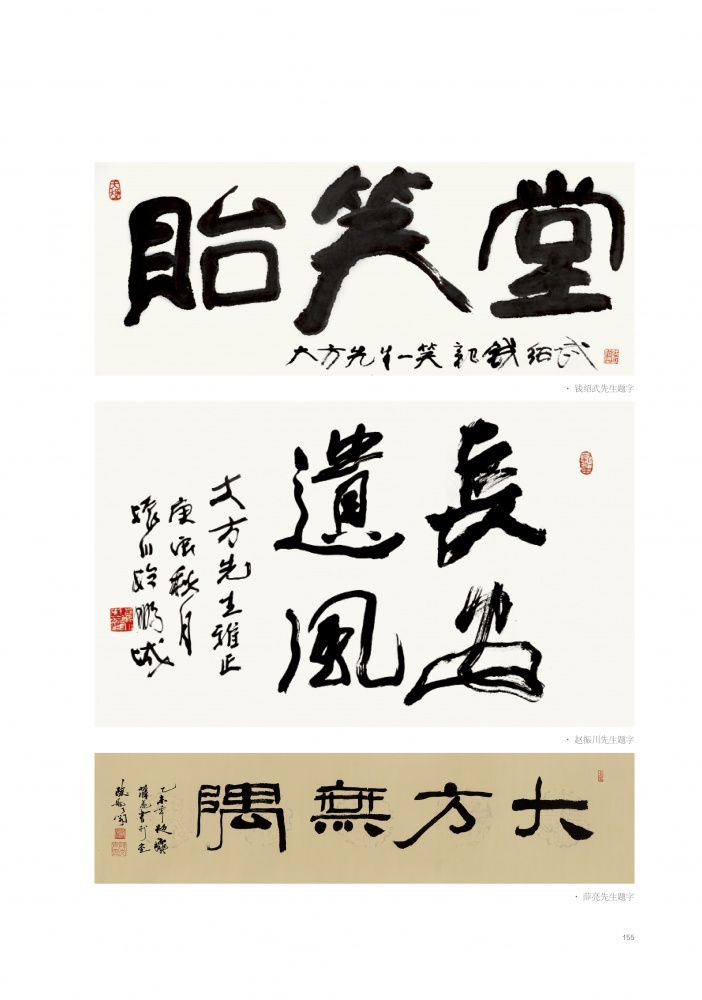 貽笑堂
大方先生一笑 錢紹武
· 钱绍武先生题字
長安
遺風
大方先生雅正
庚寅秋月
振川於鵬城
· 赵振川先生题字
大方無隅
乙未
薛亮書於
· 薛亮先生题字
155